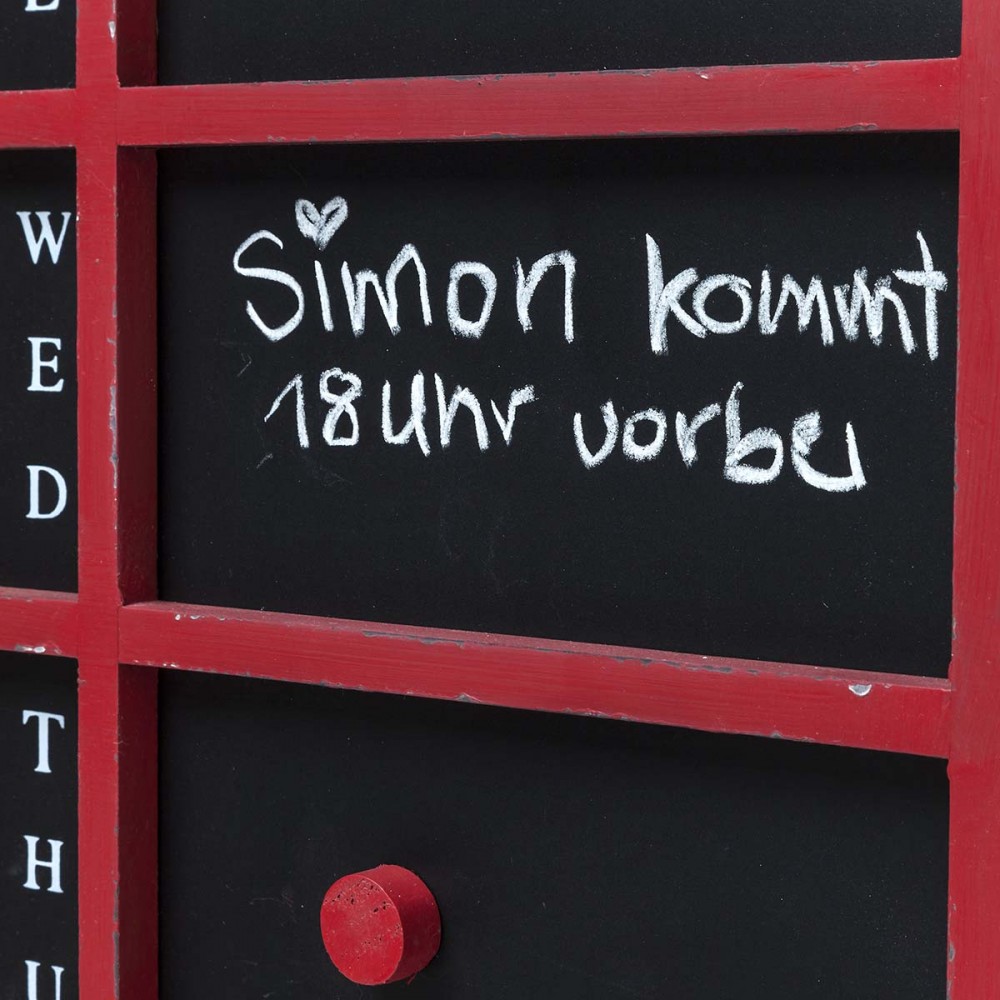 WED
Simon kommt
18 Uhr vorbei
THU